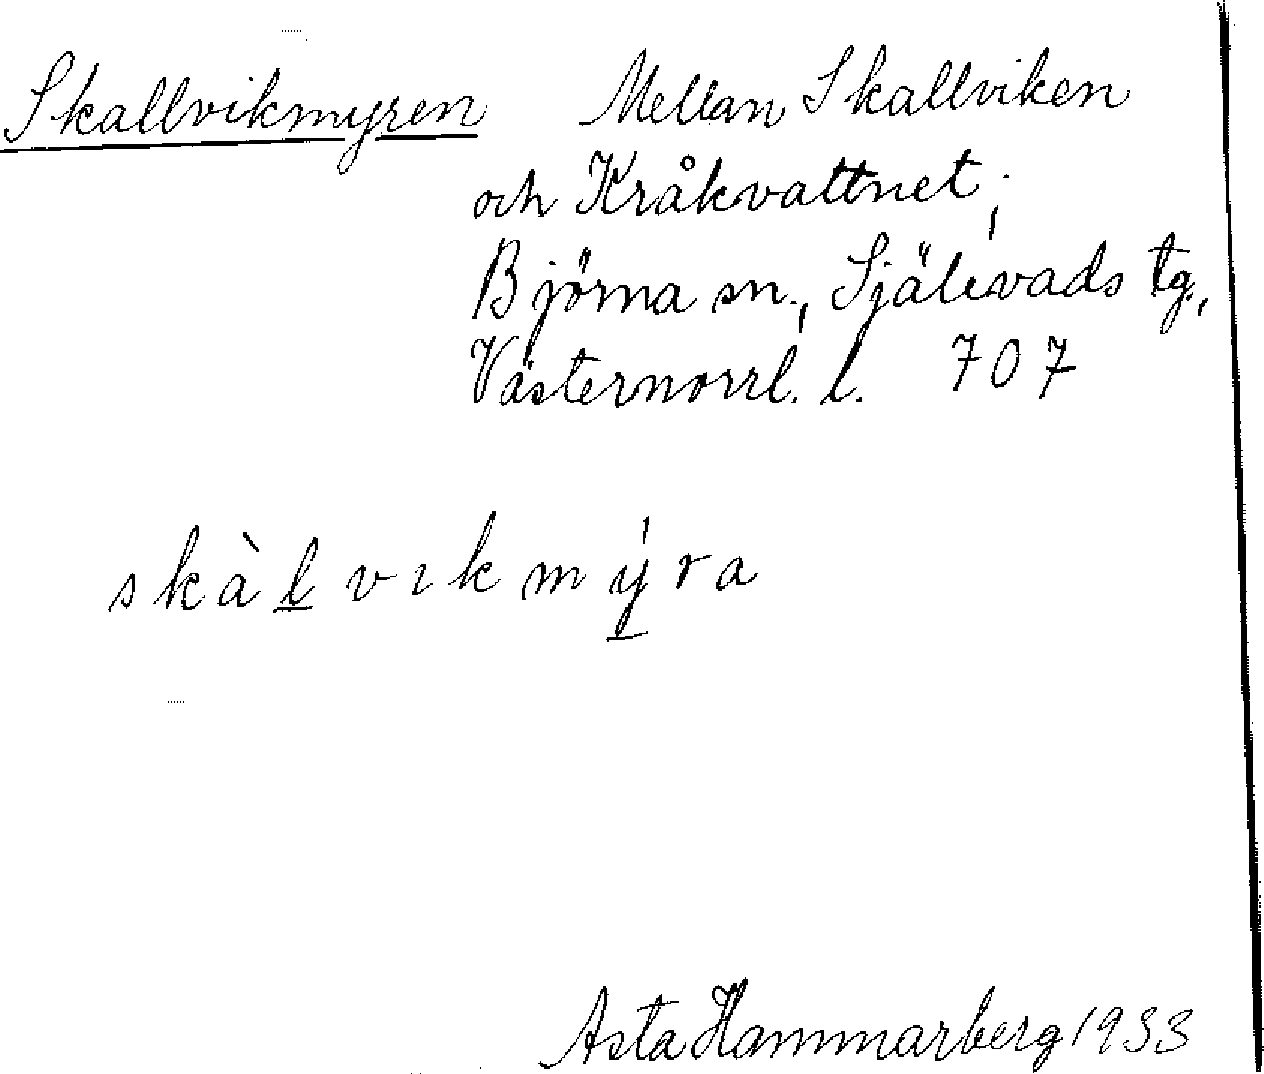 Skallvikmyren Mellan Skallviken
och Kråkvattnet;
Björna sn., Själevads tg,
Västernorrl. l. 707
skàl̲vıkmý̲ra
Asta Hammarberg 1933